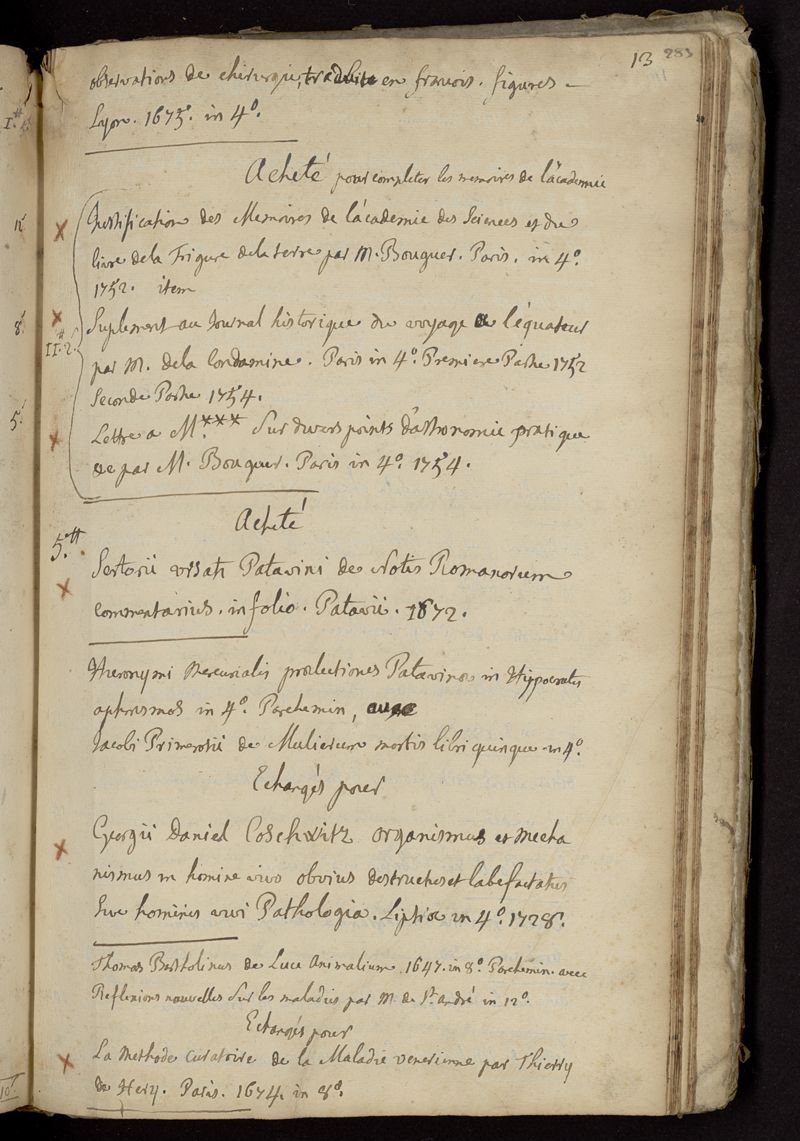 13 283
observations de chirurgie, traduite en francois. figures –
Lyon. 1675. in 4º.
Acheté pour completer les memoires de l'academie
Justification des Memoires de l'academie des Sciences et du
livre de la Frigure de la terre par M. Bouguer. Paris. in 4º.
1752. item
Suplement au Journal historique du voyage a l'équateur
11.# 2.s
par M. de la Condamine. Paris in 4º. Premiere Partie 1752
Seconde Partie 1754.
Lettre a M.*** Sur divers points d'astronomie pratique
de par M. Bouguer. Paris in 4º. 1754.
Acheté
5.#
Sertorii ursati Patavini de Notis Romanorum
commentarius. in folio. Patavii. 1672.
Hieronymi Mercurialis prælectiones Patavinæ in Hippocratis
aphorismos in 4º. Parchemin, avec
Jacobi Primerosii de Mulierum morbis libri quinque in 4º.
Echangés pour
Georgii Daniel Coschwitz organismus et mecha
nismus in homine vivo obvius destructus et labefactatus
Sive hominis vivi Pathologia. Lipsiæ in 4º. 1728.
Thomas Bartholinus de Luce Animalium 1647. in 8º. Parchemin. avec
Reflexions nouvelles Sur les maladies par M. de St. andré in 12º.
Echangés pour
La Methode curatoire de la Maladie venerienne par Thierry
de Hery. Paris. 1674. in 8º.